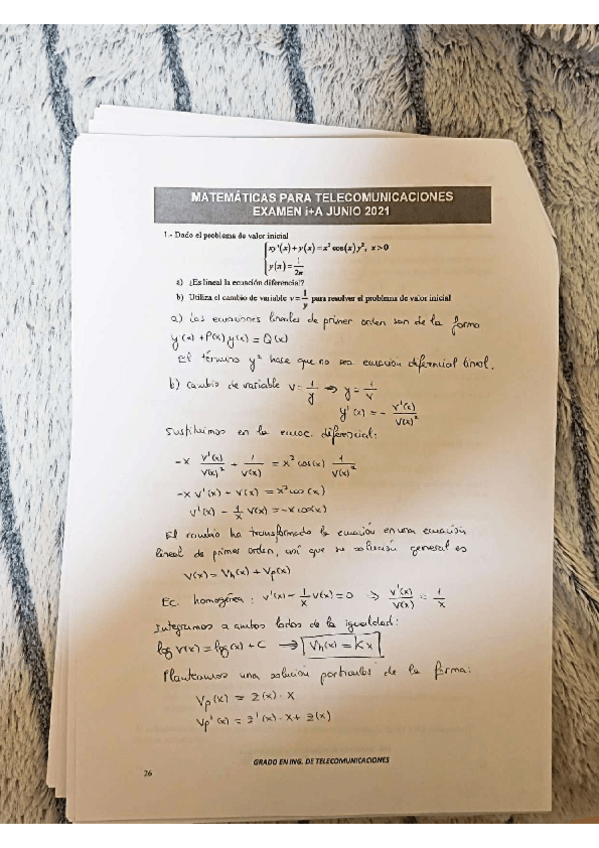 MATEMÁTICAS PARA TELECOMUNICACIONES
EXAMEN i+A JUNIO 2021
1.- Dado el problema de valor inicial
xy'(x)+y(x)=x² cos(x) y², x>0
y(π)=1/2π
a) ¿Es lineal la ecuación diferencial?
b) Utiliza el cambio de variable v=1/y para resolver el problema de valor inicial
a) Las ecuaciones lineales de primer orden son de la forma
y'(x) + P(x)y(x) = Q(x)
El término y² hace que no sea ecuación diferencial lineal.
b) Cambio de variable v = 1/y → y = 1/v
y'(x) = - v'(x)/v(x)²
Sustituimos en la ecuac. diferencial:
-x v'(x)/v(x)² + 1/v(x) = x² cos(x) 1/v(x)²
-x v'(x) + v(x) = x² cos(x)
v'(x) - 1/x v(x) = -x cos(x)
El cambio ha transformado la ecuación en una ecuación
lineal de primer orden, así que su solución general es
v(x) = Vh(x) + Vp(x)
Ec. homogénea : v'(x) - 1/x v(x) = 0 → v'(x)/v(x) = 1/x
Integramos a ambos lados de la igualdad:
log v(x) = log(x) + C → Vh(x) = Kx
Planteamos una solución particular de la forma:
Vp(x) = z(x) · x
Vp'(x) = z'(x) · x + z(x)
GRADO EN ING. DE TELECOMUNICACIONES
26